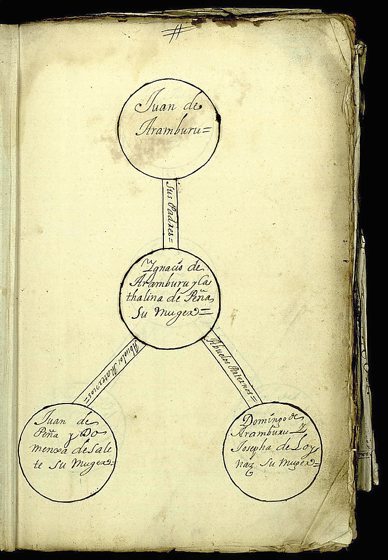 Juan de
Aramburu=
Sus Padres=
Ygnacio de
Aramburu y Ca
thalina de Peña
su muger=
Abuelos Maternos=
Abuelos Paternos=
Juan de
Peña y Do
menxa de Sale
te su Muger=
Domingo de
Aramburu y
Josepha de Loy
naz su Muger=